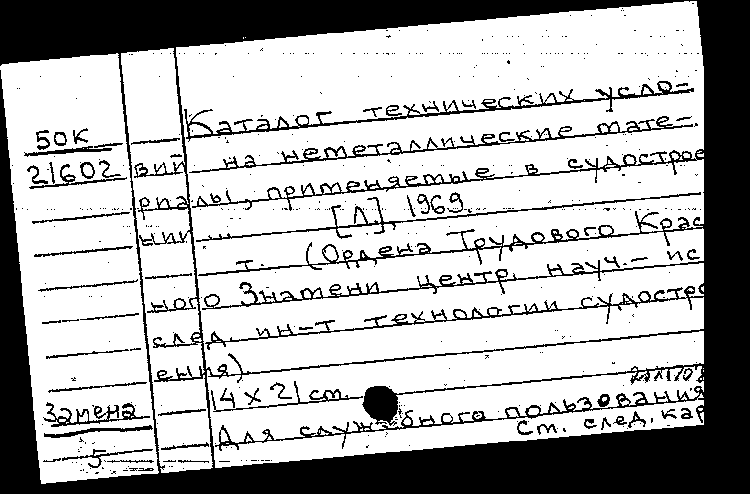 Каталог технических усло-
50К
21602
вий на неметаллические мате-
риалы, применяемые в судострое
нии... [Л.], 1969.
т. (Ордена Трудового Крас
ного Знамени центр. науч.- ис
след. ин-т технологии судостро
ения).
14 х 21 cm.
Замена
Для служебного пользования
Ст. след. кар
5